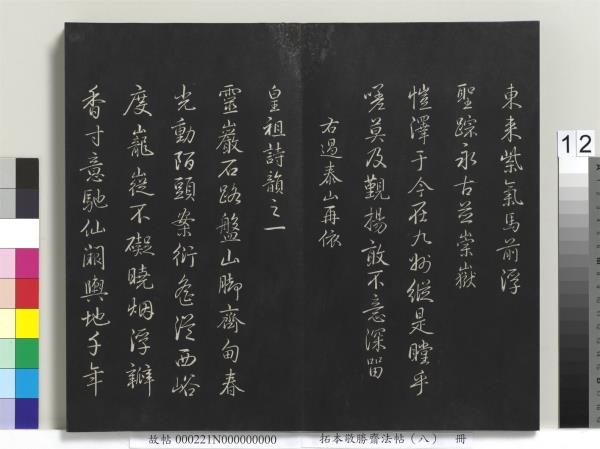 東來紫氣馬前浮
聖踪永古並崇嶽
愷澤于今在九州縱是瞠乎
嗟莫及覲揚敢不意深留
右過泰山再依
皇祖詩韻之一
靈巖石路盤山腳齊甸春
光動陌頭案衍從西峪
度巃嵸不礙曉烟浮瓣
香寸意馳仙闕輿地千年
12
故帖 000221N000000000 拓本敬勝齋法帖（八） 冊